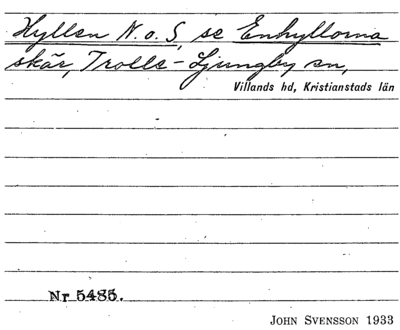 Hyllen N. o. S, se Enhyllorna
skär, Trolle-Ljungby sn,
Villands hd, Kristianstads län
Nr 5485.
JOHN SVENSSON 1933